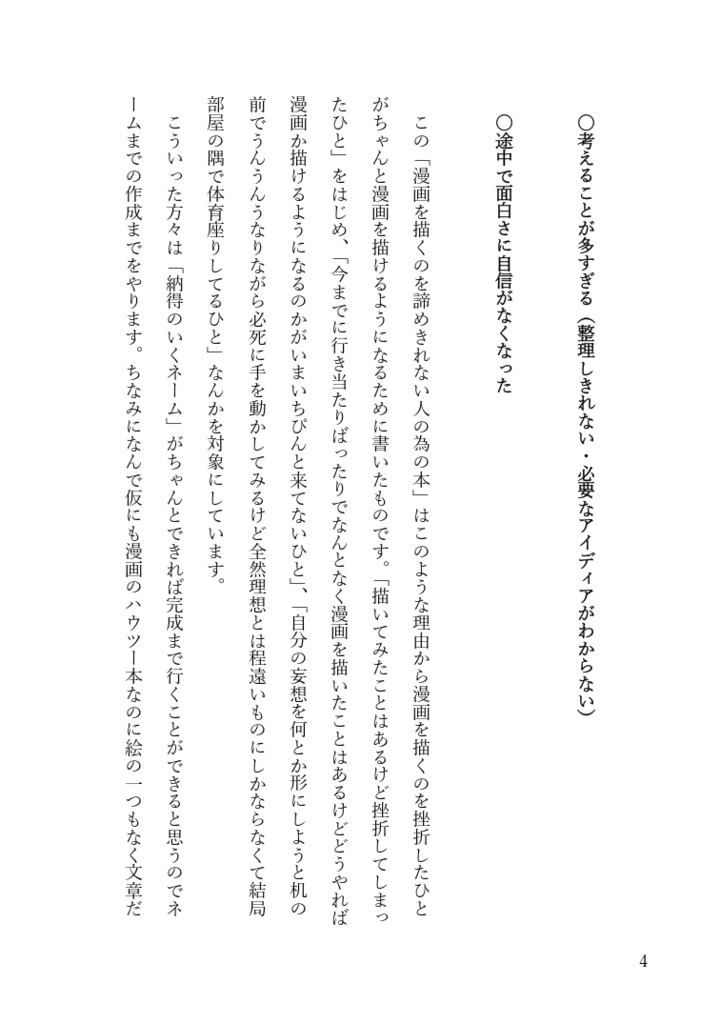 〇考えることが多すぎる（整理しきれない・必要なアイディアがわからない）
〇途中で面白さに自信がなくなった
この「漫画を描くのを諦めきれない人の為の本」はこのような理由から漫画を描くのを挫折したひと
がちゃんと漫画を描けるようになるために書いたものです。「描いてみたことはあるけど挫折してしまっ
たひと」をはじめ、「今までに行き当たりばったりでなんとなく漫画を描いたことはあるけどどうやれば
漫画か描けるようになるのかがいまいちぴんと来てないひと」、「自分の妄想を何とか形にしようと机の
前でうんうんうなりながら必死に手を動かしてみるけど全然理想とは程遠いものにしかならなくて結局
部屋の隅で体育座りしてるひと」なんかを対象にしています。
こういった方々は「納得のいくネーム」がちゃんとできれば完成まで行くことができると思うのでネ
ームまでの作成までをやります。ちなみになんで仮にも漫画のハウツー本なのに絵の一つもなく文章だ
4